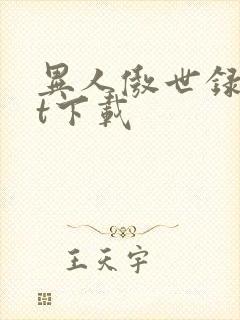 異人傲世録
t下載
王天宇